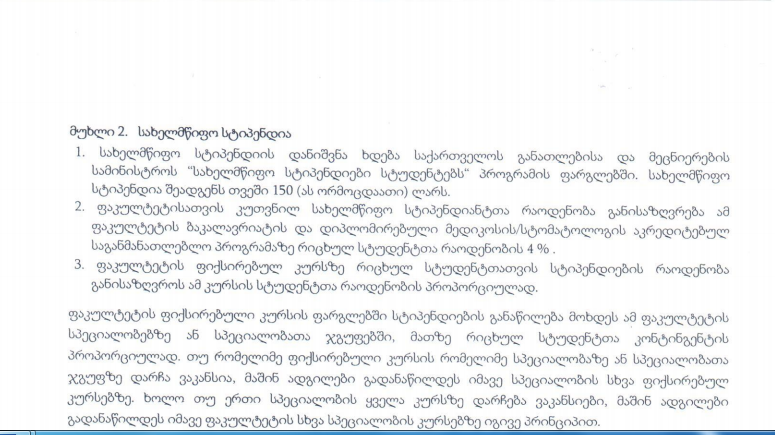 მუხლი 2. სახელმწიფო სტიპენდია
1. სახელმწიფო სტიპენდიის დანიშვნა ხდება საქართველოს განათლებისა და მეცნიერების
სამინისტროს "სახელმწიფო სტიპენდიები სტუდენტებს" პროგრამის ფარგლებში. სახელმწიფო
სტიპენდია შეადგენს თვეში 150 (ას ორმოცდაათი) ლარს.
2. ფაკულტეტისათვის კუთვნილ სახელმწიფო სტიპენდიანტთა რაოდენობა განისაზღვრება ამ
ფაკულტეტის ბაკალავრიატის და დიპლომირებული მედიკოსის/სტომატოლოგის აკრედიტებულ
საგანმანათლებლო პროგრამაზე რიცხულ სტუდენტთა რაოდენობის 4 % .
3. ფაკულტეტის ფიქსირებულ კურსზე რიცხულ სტუდენტთათვის სტიპენდიების რაოდენობა
განისაზღვროს ამ კურსის სტუდენტთა რაოდენობის პროპორციულად.
ფაკულტეტის ფიქსირებული კურსის ფარგლებში სტიპენდიების განაწილება მოხდეს ამ ფაკულტეტის
სპეციალობებზე ან სპეციალობათა ჯგუფებში, მათზე რიცხულ სტუდენტთა კონტინგენტის
პროპორციულად. თუ რომელიმე ფიქსირებული კურსის რომელიმე სპეციალობაზე ან სპეციალობათა
ჯგუფზე დარჩა ვაკანსია, მაშინ ადგილები გადანაწილდეს იმავე სპეციალობის სხვა ფიქსირებულ
კურსებზე. ხოლო თუ ერთი სპეციალობის ყველა კურსზე დარჩება ვაკანსიები, მაშინ ადგილები
გადანაწილდეს იმავე ფაკულტეტის სხვა სპეციალობის კურსებზე იგივე პრინციპით.